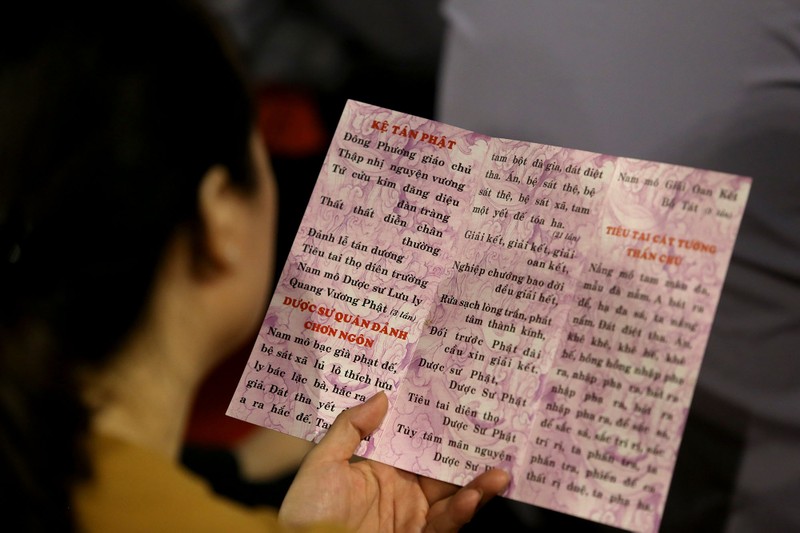 KỆ TÁN PHẬT
Đông Phương giáo chủ
Thập nhị nguyện vương
Tứ cửu kim đăng diệu
đàn tràng
Thất thất diễn chân
thường
Đảnh lễ tán dương
Tiêu tai thọ diên trường
Nam mô Dược sư Lưu ly
Quang Vương Phật (3 lần)
DƯỢC SƯ QUÁN ĐẢNH
CHƠN NGÔN
Nam mô bạc già phạt đế,
bệ sát xã lủ lô thích lưu
ly bác lặc bà, hắc ra
giả, Đát tha yết
a ra hắc đế. Tam
tam bột đà gia, đát điệt
tha. Án, bệ sát thệ, bệ
sát thệ, bệ sát xã, tam
một yết đế tóa ha.
(21 lần)
Giải kết, giải kết, giải
oan kết,
Nghiệp chướng bao đời
đều giải hết,
Rửa sạch lòng trần, phát
tâm thành kính,
Đối trước Phật đài
cầu xin giải kết,
Dược sư Phật
Dược Sư Phật
Tiêu tai diên thọ
Dược Sư Phật
Tùy tâm mãn nguyện
Dược Sư
Nam mô Giải Oan Kết
Bồ Tát (3 lần)
TIÊU TAI CÁT TƯỜNG
THẦN CHÚ
Nẳng mồ tam mãn đa,
mẫu đà nẫm. A bát ra
để, hạ đa sá, ta nẵng
nẫm. Đát điệt tha. Án,
khê khê, khê hế, khê
hế, hồng hồng nhập phạ
ra, nhập phạ ra, bát ra
nhập phạ ra, bát ra
nhập phạ ra, để sắc sá,
để sắc sá, sắc trí rị, sắc
trí rị, ta phấn tra, ta
phấn tra, phiến để ca
thất rị duệ, ta phạ ha.